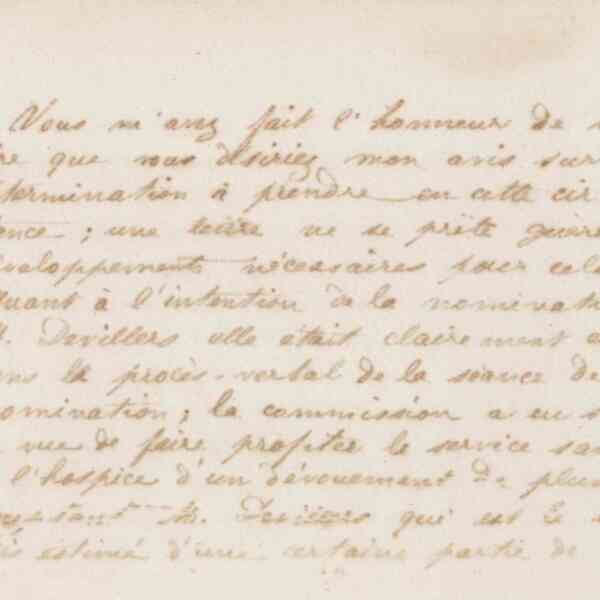 Vous m'avez fait l'honneur de
re que vous désiriez mon avis sur
termination à prendre en cette cir
ence ; une lettre ne se prête guère
veloppements nécessaires pour cela
Quant à l'intention de la nominati
M. Devillers elle était clairement
ns le procès-verbal de la séance de
omination ; la commission a eu
vue de faire profiter le service san
l'hospice d'un dévouement de plus
M. Devillers qui est le
is estimé d'une certaine partie de